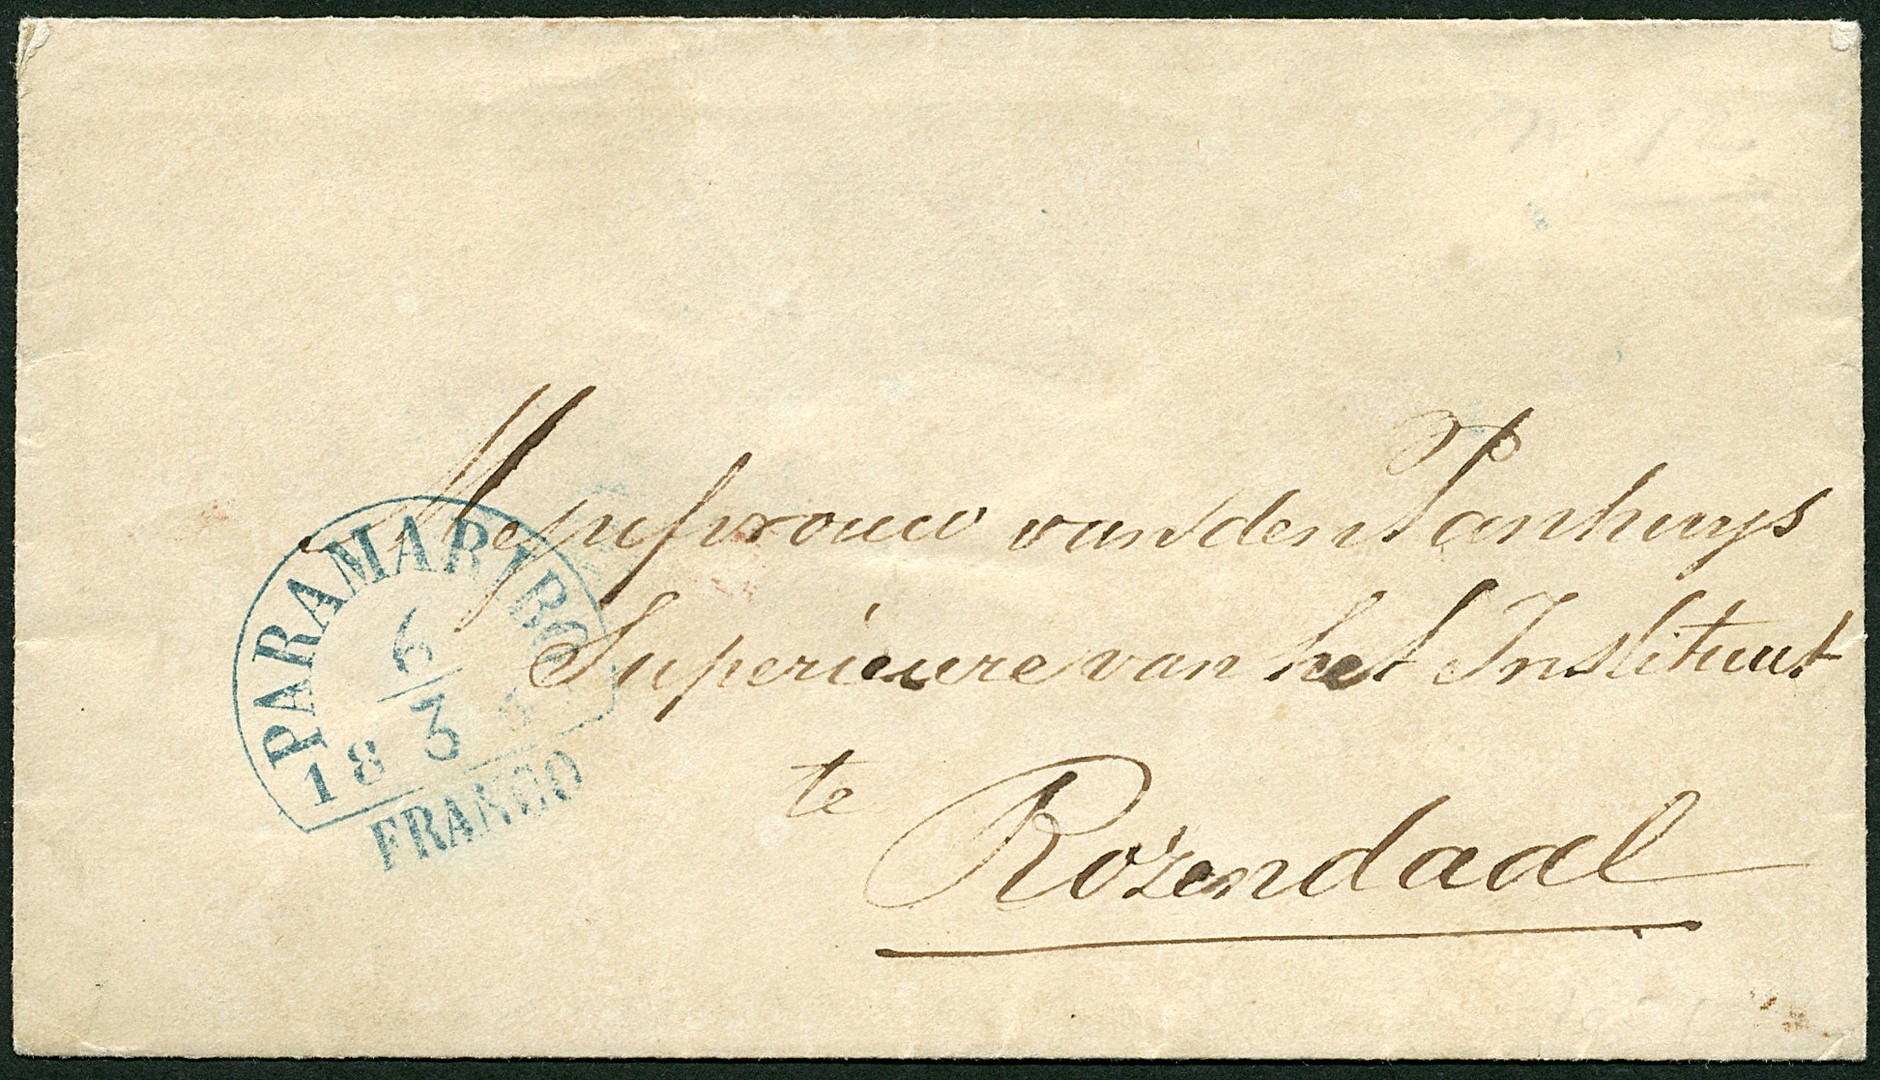 No 12
Mejufvrouw van den Panhuys
Superieure van het Instituut
te
Rozendaal
PARAMARIBO
6
3
18
FRANCO